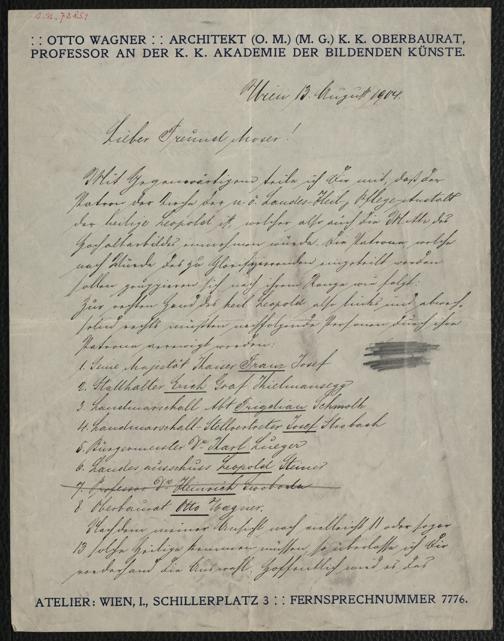 :: OTTO WAGNER :: ARCHITEKT (O. M.) (M. G.) K. K. OBERBAURAT,
PROFESSOR AN DER K. K. AKADEMIE DER BILDENDEN KÜNSTE.
Wien 13. August 1904.
Lieber Freund Moser!
Mit Gegenwärtigem teile ich Dir mit, daß der
Patron der Kirche der n. ö. Landes-Heil, Pflege-Anstalt
der heilige Leopold ist, welcher also auch die Mitte des
Hochaltarbildes einnehmen würde. Die Patrone, welche
nach Würde des zu eingeteilt werden
sollen gruppieren sich nach ihrem Range wie folgt:
Zur rechten Hand des heil. Leopold also links und abwech-
selnd rechts müßten nachfolgende Personen durch ihre
Patrone verewigt werden:
1. Seine Majestät Kaiser Franz Josef
2. Statthalter Erich Graf Kielmansegg
3. Landmarschall Abt Frigdian Schmolk
4. Landmarschall-Stellvertreter Josef
5. Bürgermeister Dr Karl Lueger
6. Landesausschuss Leopold Steiner
7. Professor Dr Heinrich Swoboda
8. Oberbaurat Otto Wagner.
Nachdem meiner Ansicht nach vielleicht 11 oder sogar
13 solche Heilige kommen müssen, so überlasse ich Dir
vorderhand die Auswahl. Hoffentlich wird es das
ATELIER: WIEN, I., SCHILLERPLATZ 3 :: FERNSPRECHNUMMER 7776.